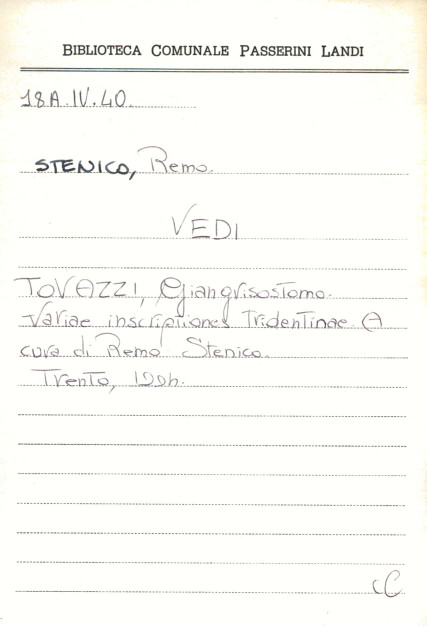 BIBLIOTECA COMUNALE PASSERINI LANDI
18A.IV.40.
STENICO, Remo.
VEDI
TOVAZZI, Giangrisostomo.
Variae inscriptiones Tridentinae. A
cura di Remo Stenico.
Trento, 1994.